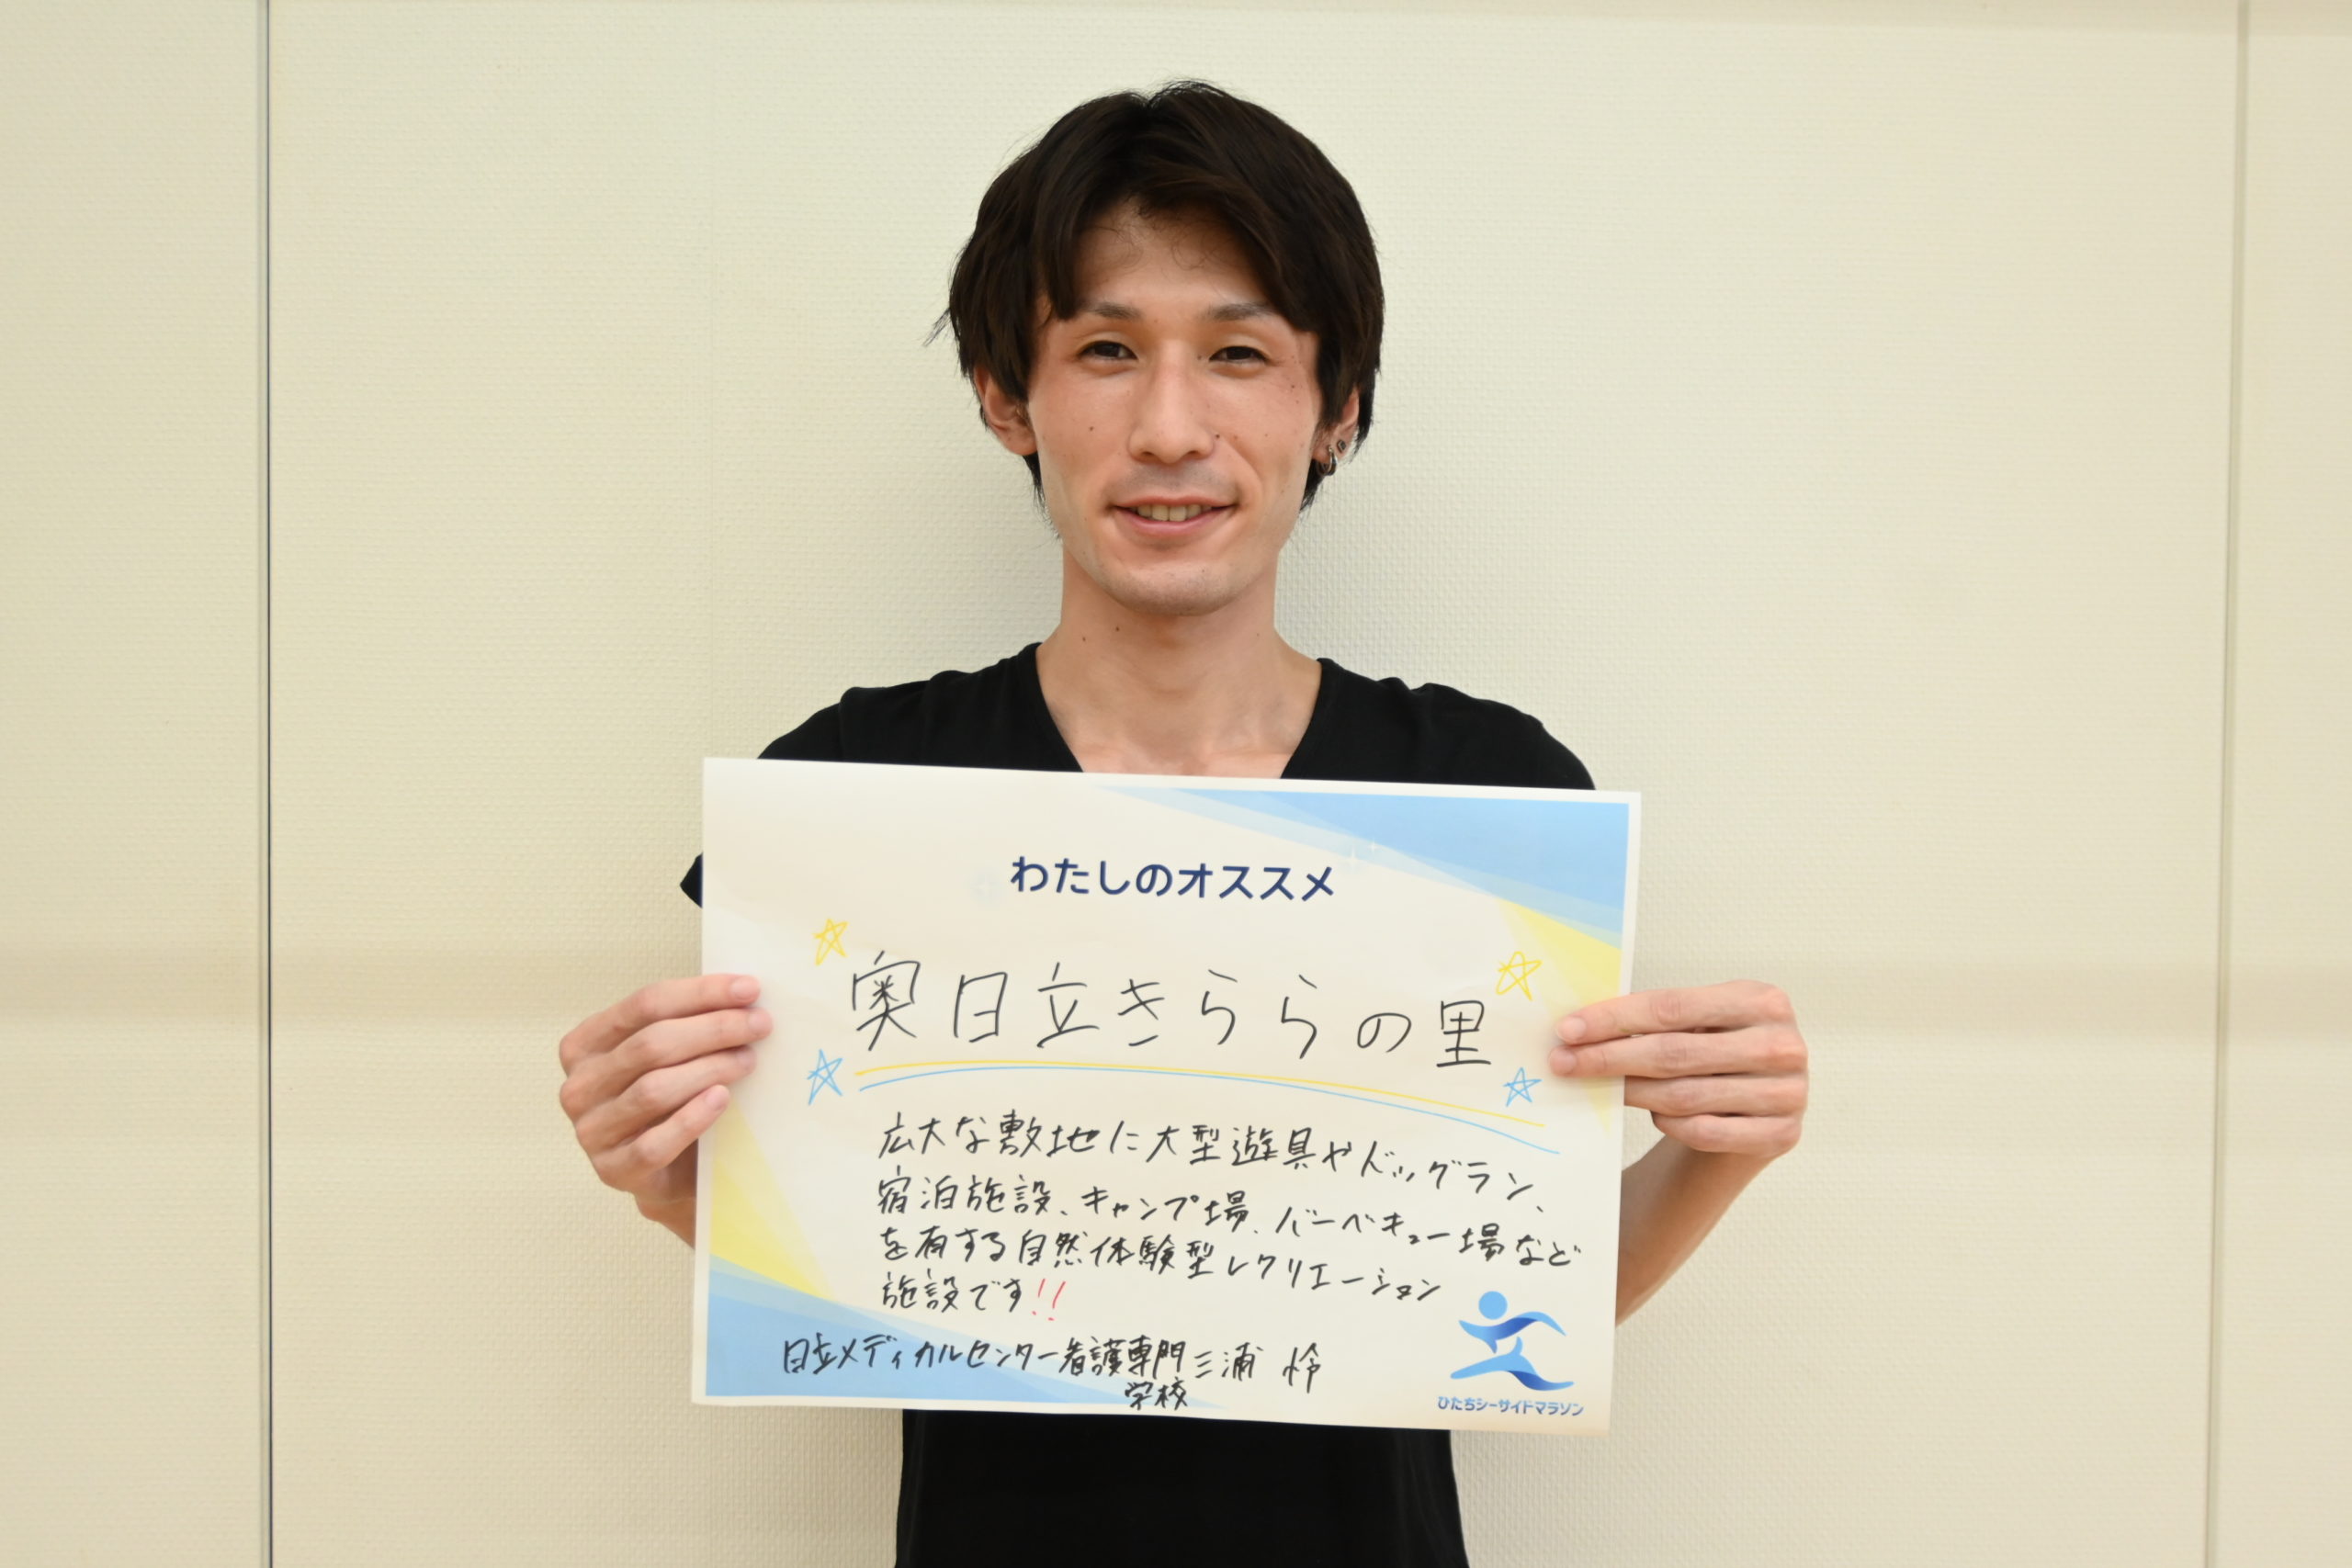 わたしのオススメ
奥日立きららの里
広大な敷地に大型遊具やドッグラン、
宿泊施設、キャンプ場、バーベキュー場など
を有する自然体験型レクリエーション
施設です!!
日立メディカルセンター看護専門 三浦 怜
学校
ひたちシーサイドマラソン